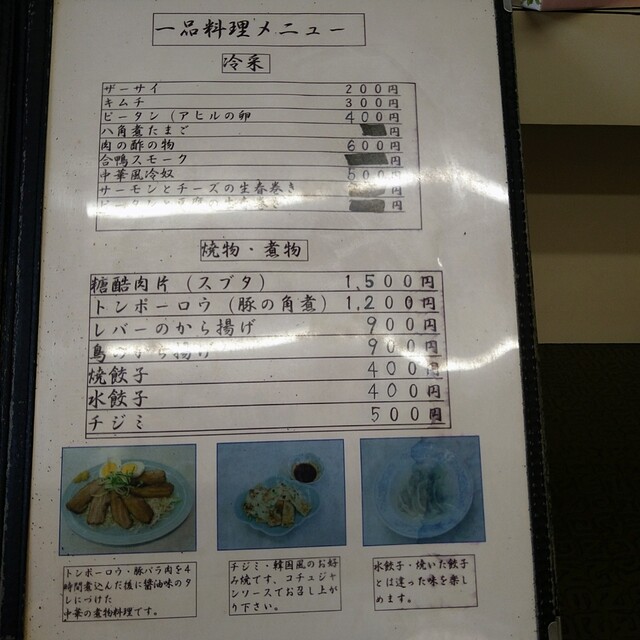 一品料理メニュー
冷采
ザーサイ 200円
キムチ 300円
ピータン(アヒルの卵 400円
八角煮たまご 円
肉の酢の物 600円
合鴨スモーク 円
中華風冷奴 500円
サーモンとチーズの生春巻き 円
円
焼物・煮物
糖酷肉片(スブタ) 1,500円
トンポーロウ(豚の角煮) 1,200円
レバーのから揚げ 900円
鳥のから揚げ 900円
焼餃子 400円
水餃子 400円
チジミ 500円
トンポーロウ・豚バラ肉を4
時間煮込んだ後に醤油味のタ
レにつけた
中華の煮物料理です。
チジミ・韓国風のお好
み焼です。コチュジャ
ンソースでお召し上が
り下さい。
水餃子・焼いた餃子
とは違った味を楽し
めます。